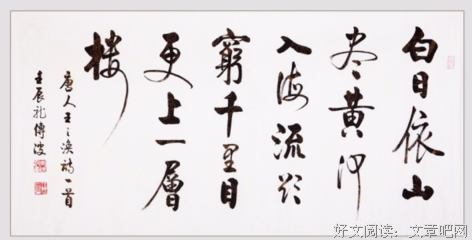 白日依山
尽黄河
入海流欲
窮千里目
更上一層
樓
唐人王之渙詩一首
壬辰
好文阅读：文章吧网